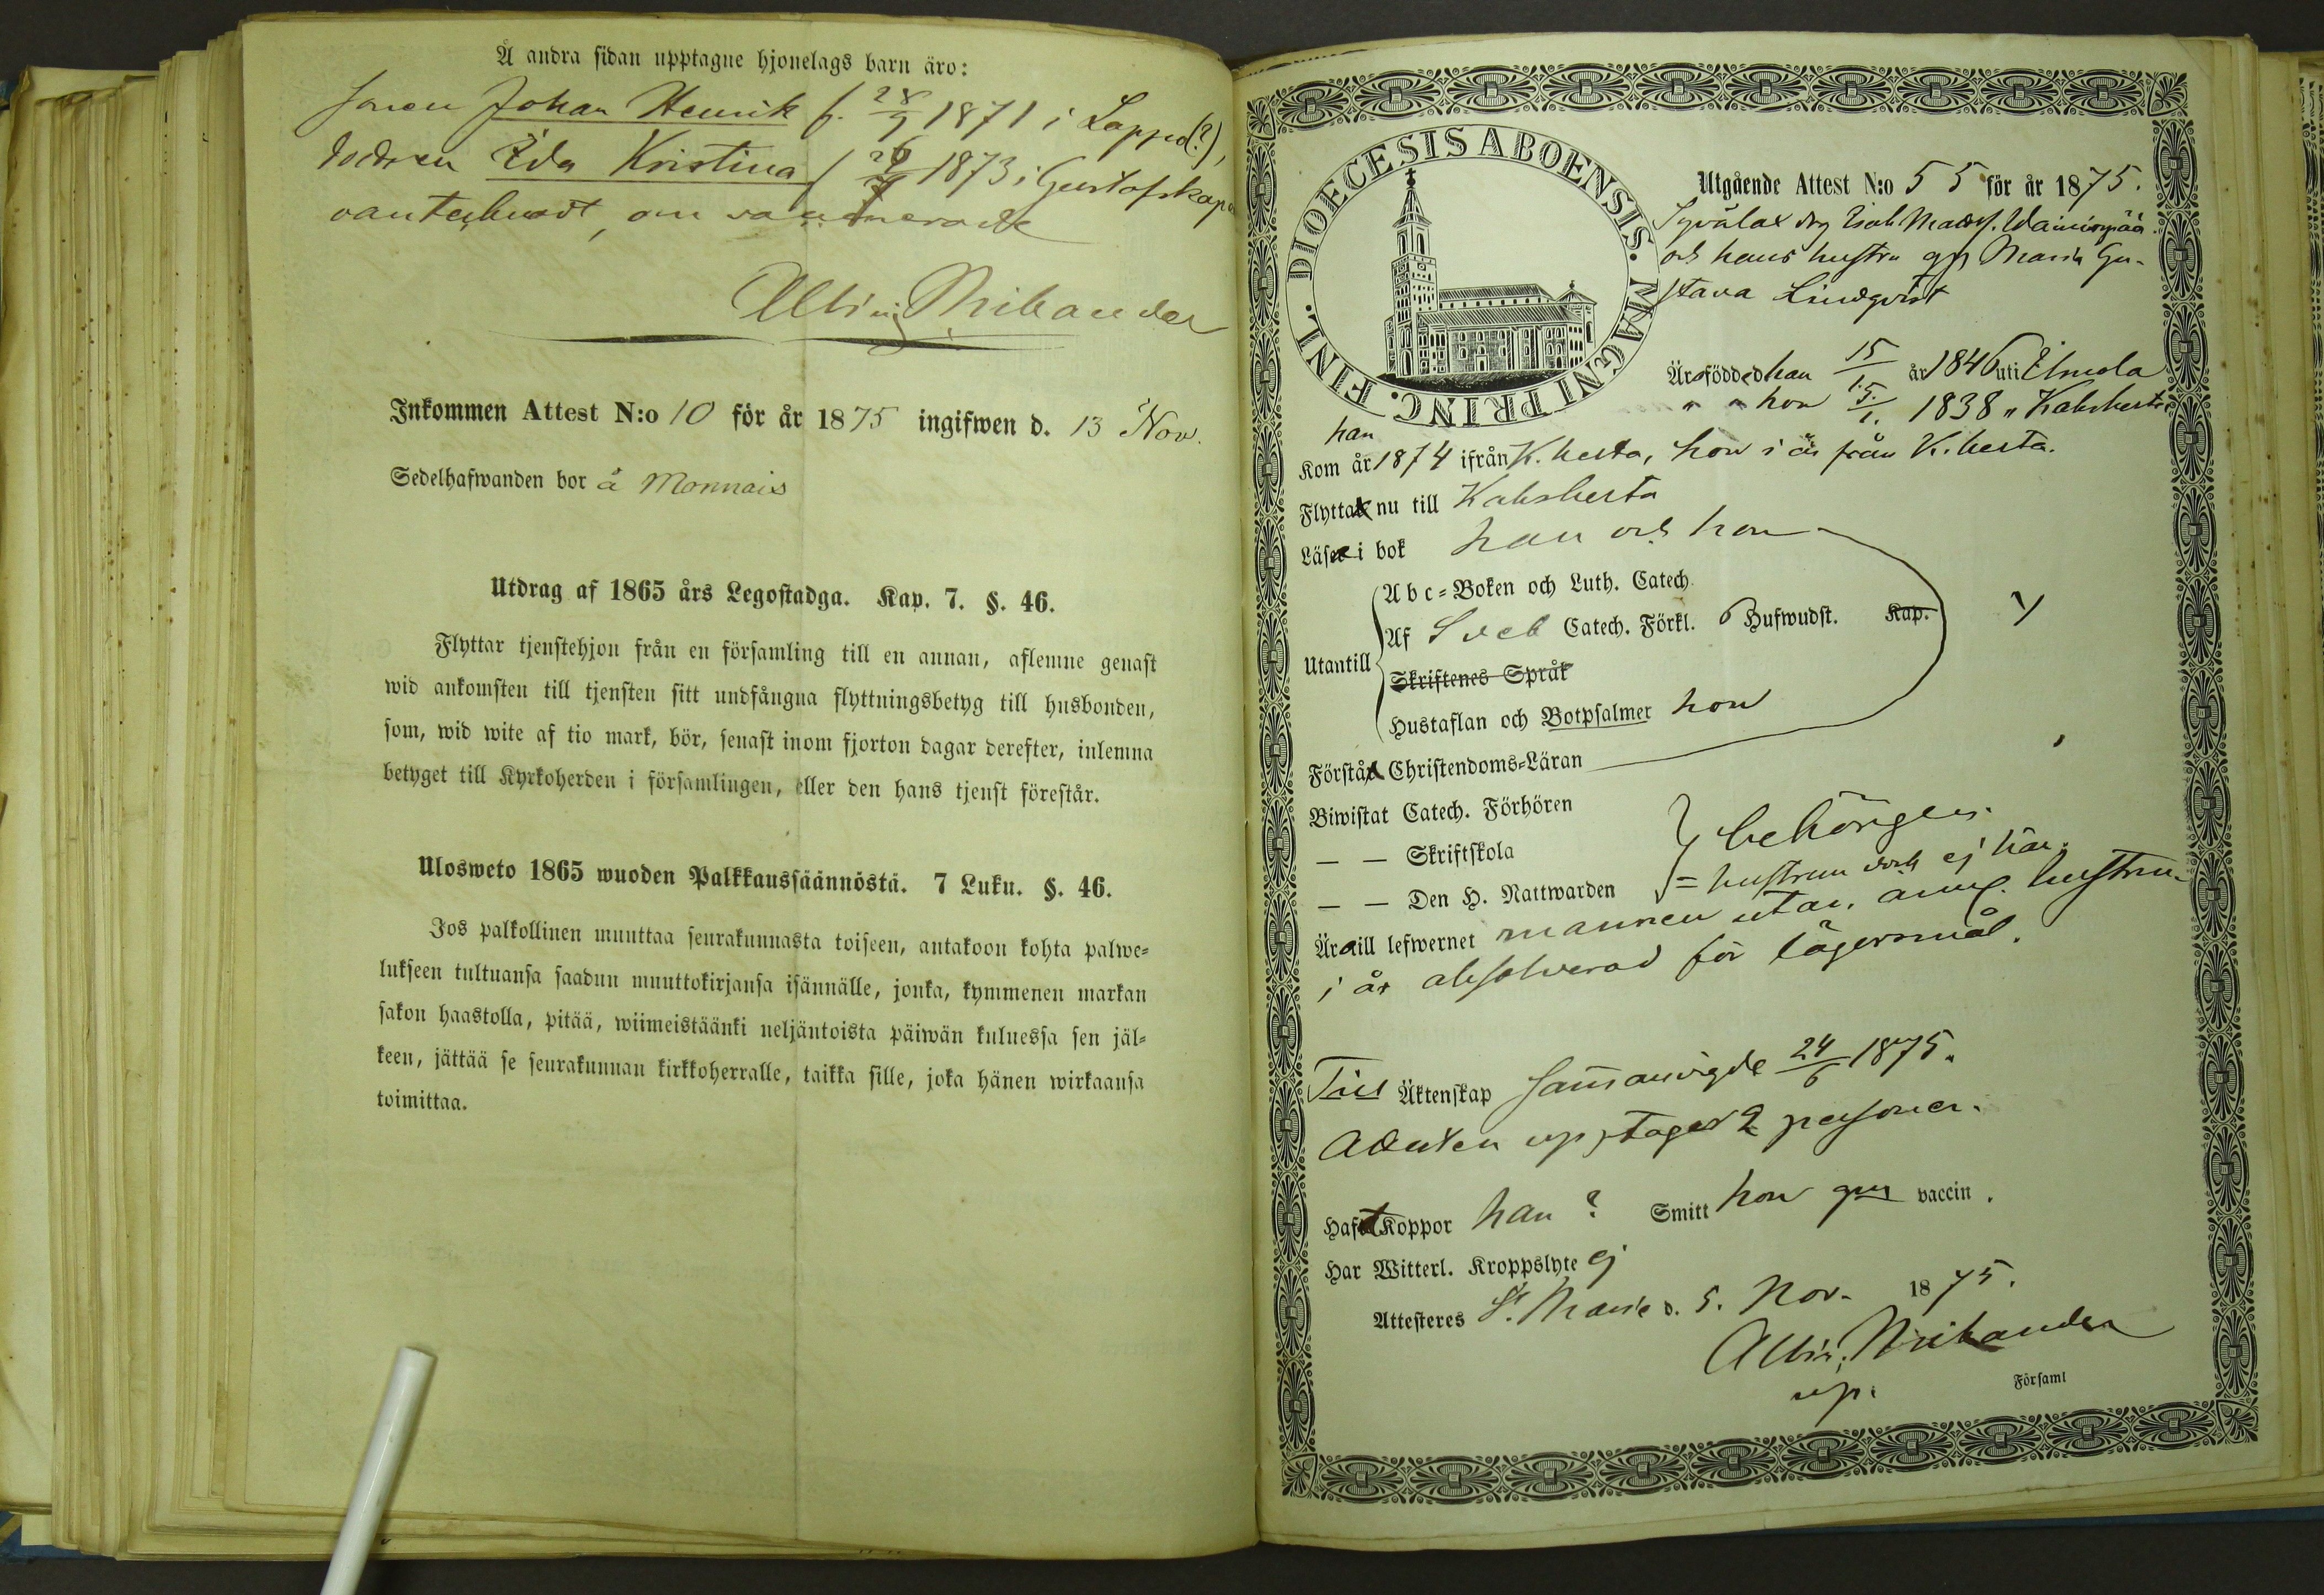 Å andra sidan upptagne hjonelags barn äro:
sonen Johan Henrik f. 28/9 1871 i Lappo(?),
dottren Ida Kristina f 26/7 1873 i Gustafs kap.
om vaccinerade
Albin Mikander
Inkommen Attest N:o 10 för år 1875 ingifwen d. 13 Nov.
Sedelhafwanden bor å Monnais
Utdrag af 1865 års Legostadga. Kap. 7. §. 46.
Flyttar tjenstehjon från en församling till en annan, aflemne genast
wid ankomsten till tjensten sitt undfångna flyttningsbetyg till husbonden,
som, wid wite af tio mark, bör, senast inom fjorton dagar derefter, inlemna
betyget till Kyrkoherden i församlingen, eller den hans tjenst förestår.
Ulosweto 1865 wuoden Palkkaussäännöstä. 7 Luku. §. 46.
Jos palkollinen muuttaa seurakunnasta toiseen, antakoon kohta palwe-
lukseen tultuansa saadun muuttokirjansa isännälle, jonka, kymmenen markan
sakon haastolla, pitää, wiimeistäänki neljäntoista päiwän kuluessa sen jäl-
keen, jättää se seurakunnan kirkkoherralle, taikka sille, joka hänen wirkaansa
toimittaa.
DIOECESIS ABOENSIS. MAGNI PRINC. FINL.
Utgående Attest N:o 55 för år 1875.
drg Isak Matss. Wainionpää
och hans hustru Maria Gu-
stava Lindqvist
Äro född ed han 15/ år 1846 uti Ilmola
" " hon 15/1. 1838 " Kakskerta
han
Kom år 1874 ifrån K. kerta, hon i år från K. kerta.
Flytta nu till Kakskerta
Läse i bok han och hon
Utantill
Abc-Boken och Luth. Catech.
Af Sveb Catech. Förkl. 6 Hufwudst. Kap.
Skriftenes Språk
Hustaflan och Botpsalmer hon
Förstå Christendoms-Läran
Biwistat Catech. Förhören
— — Skriftskola
behörigen
— — Den H. Nattwarden = hustrun dock ej här.
Äro till lefwernet mannen utan anm. hustrun
i år absolverad för lägersmål.
Till Äktenskap sammanvigde 24/6 1875.
Attesten upptager 2 personer.
Haft Koppor han ? Smitt hon gm vaccin.
Har Witterl. Kroppslyte ej
Attesteres St. Marie d. 5. Nov. 1875.
Albin Mikander
Församl